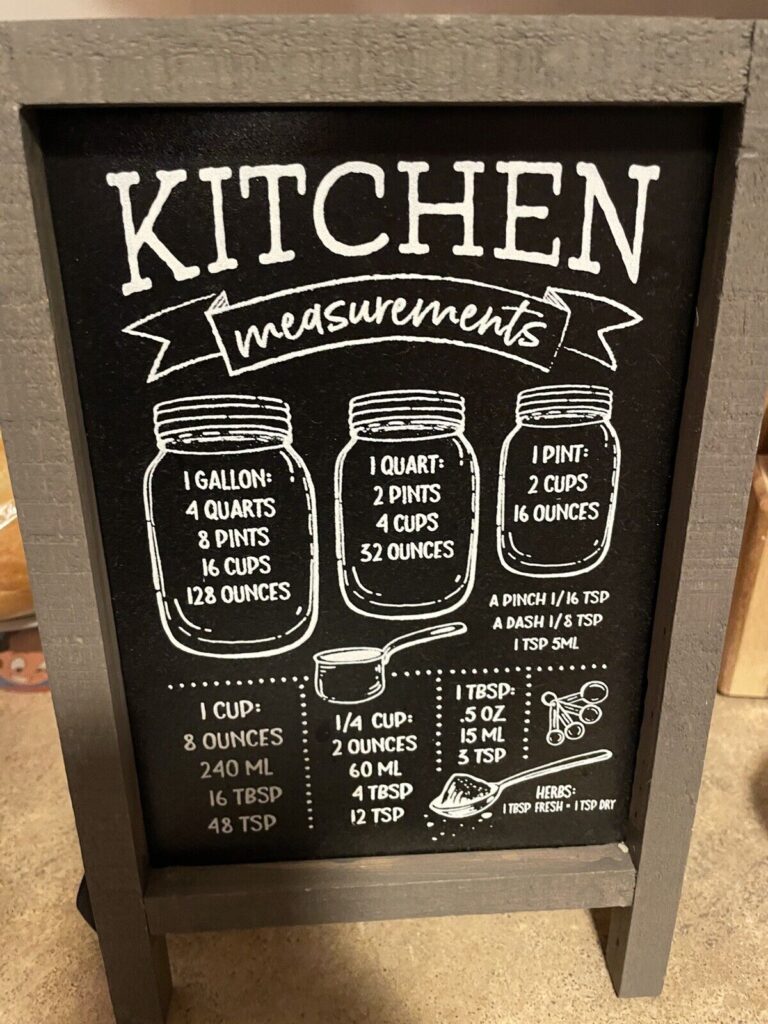 KITCHEN
measurements
1 GALLON:
4 QUARTS
8 PINTS
16 CUPS
128 OUNCES
1 QUART:
2 PINTS
4 CUPS
32 OUNCES
1 PINT:
2 CUPS
16 OUNCES
A PINCH 1/16 TSP
A DASH 1/8 TSP
1 TSP 5ML
1 CUP:
8 OUNCES
240 ML
16 TBSP
48 TSP
1/4 CUP:
2 OUNCES
60 ML
4 TBSP
12 TSP
1 TBSP:
.5 OZ
15 ML
3 TSP
HERBS:
1 TBSP FRESH = 1 TSP DRY